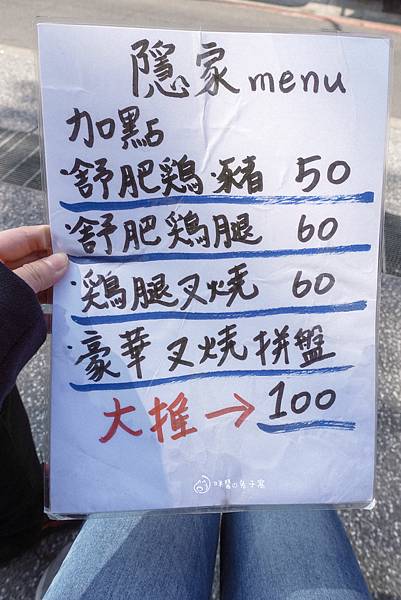 隱家 menu
加點
·舒肥鷄·豬 50
·舒肥鷄腿 60
·鷄腿叉燒 60
·豪華叉燒拼盤
大推→100